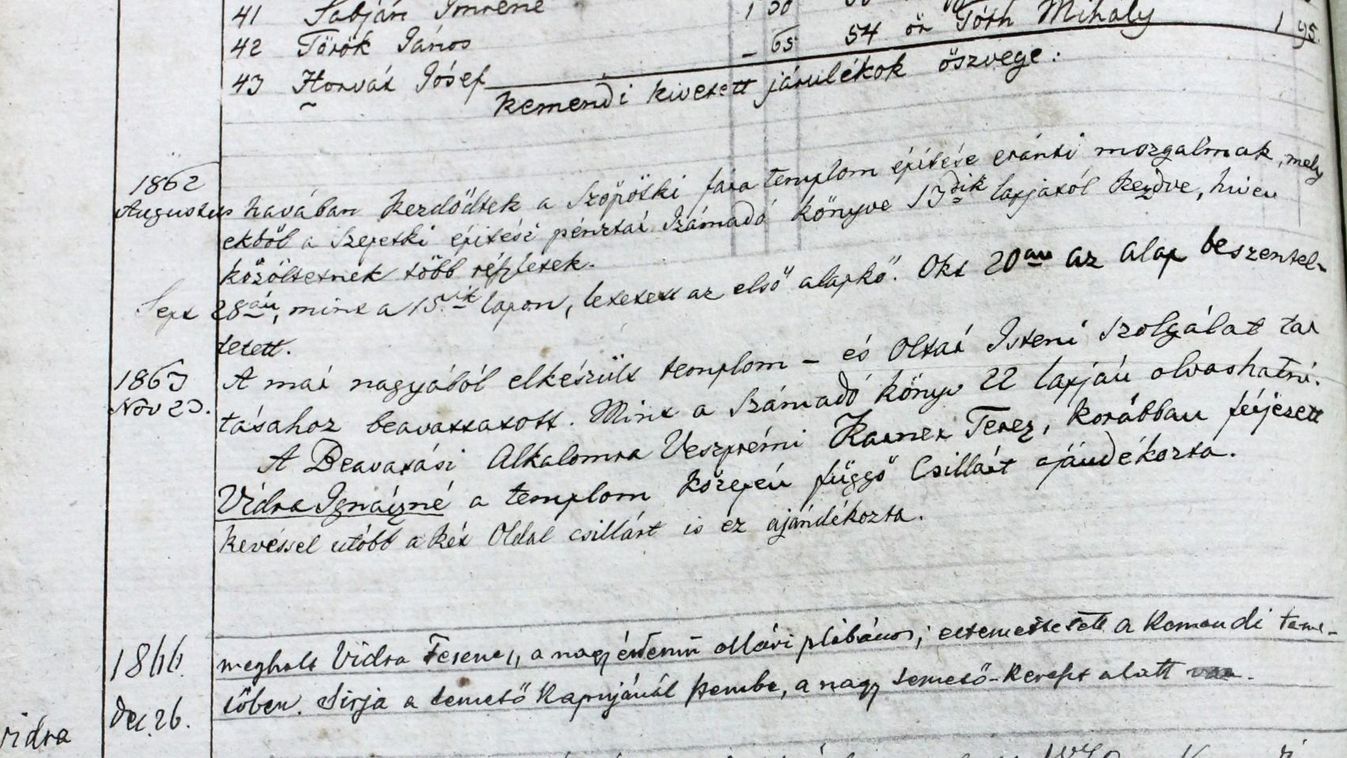 41 Fabján Imréné 1 30
42 Török János – 65 54 öz Tóth Mihály 1 95.
43 Horvát Jósef
Kemendi kivetett járulékok öszvege:
1862
Augustus havában kezdődtek a Szöpötki fara templom építése eránti mozgalmak, mely
ekből a Szepetki építési pénztár Számadó könyve 13dik lapjától kezdve, híven
közöltetnek több részletek.
Sept 28án, mint a 15ik lapon, letetett az első alapkő. Okt 20an az alap beszentel-
tetett.
1863 A már nagyából elkészült templom – és Oltár Isteni szolgálat tar
Nov 23. tásához beavattatott. Mint a Számadó könyv 22 lapján olvasható.
A Beavatási Alkalomra Veszprémi Karner Terez, korábban férjezett
Vidra Ignáczné a templom közepén függő Csillárt ajándékozta.
kevéssel utóbb a két Oldal csillárt is ez ajándékozta.
1866. meghalt Vidra Ferencz, a nagyérdemű ollári plébános; eltemettetett a Kemendi teme-
Dec. 26. tőben. Sirja a temető kapujánál szembe, a nagy temető-kereszt alatt van.
vidra